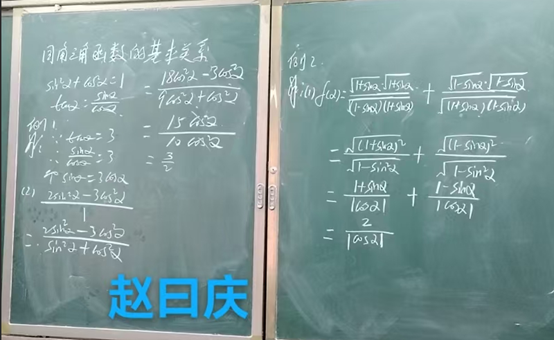 同角三角函数的基本关系
sin²α + cos²α = 1
tanα = sinα/cosα
例1
解: ∵ tanα = 3
∴ sinα/cosα = 3
sinα = 3cosα
(2) (2sin²α - 3cos²α)/1
= (2sin²α - 3cos²α)/(sin²α + cos²α)
= (18cos²α - 3cos²α)/(9cos²α + cos²α)
= 15cos²α/10cos²α
= 3/2
例2.
解: (1) f(α) = √(1+sinα)·√(1+sinα)/√((1-sinα)(1+sinα)) + √(1-sinα)·√(1-sinα)/√((1+sinα)(1-sinα))
= √((1+sinα)²)/√(1-sin²α) + √((1-sinα)²)/√(1-sin²α)
= (1+sinα)/|cosα| + (1-sinα)/|cosα|
= 2/|cosα|
赵曰庆